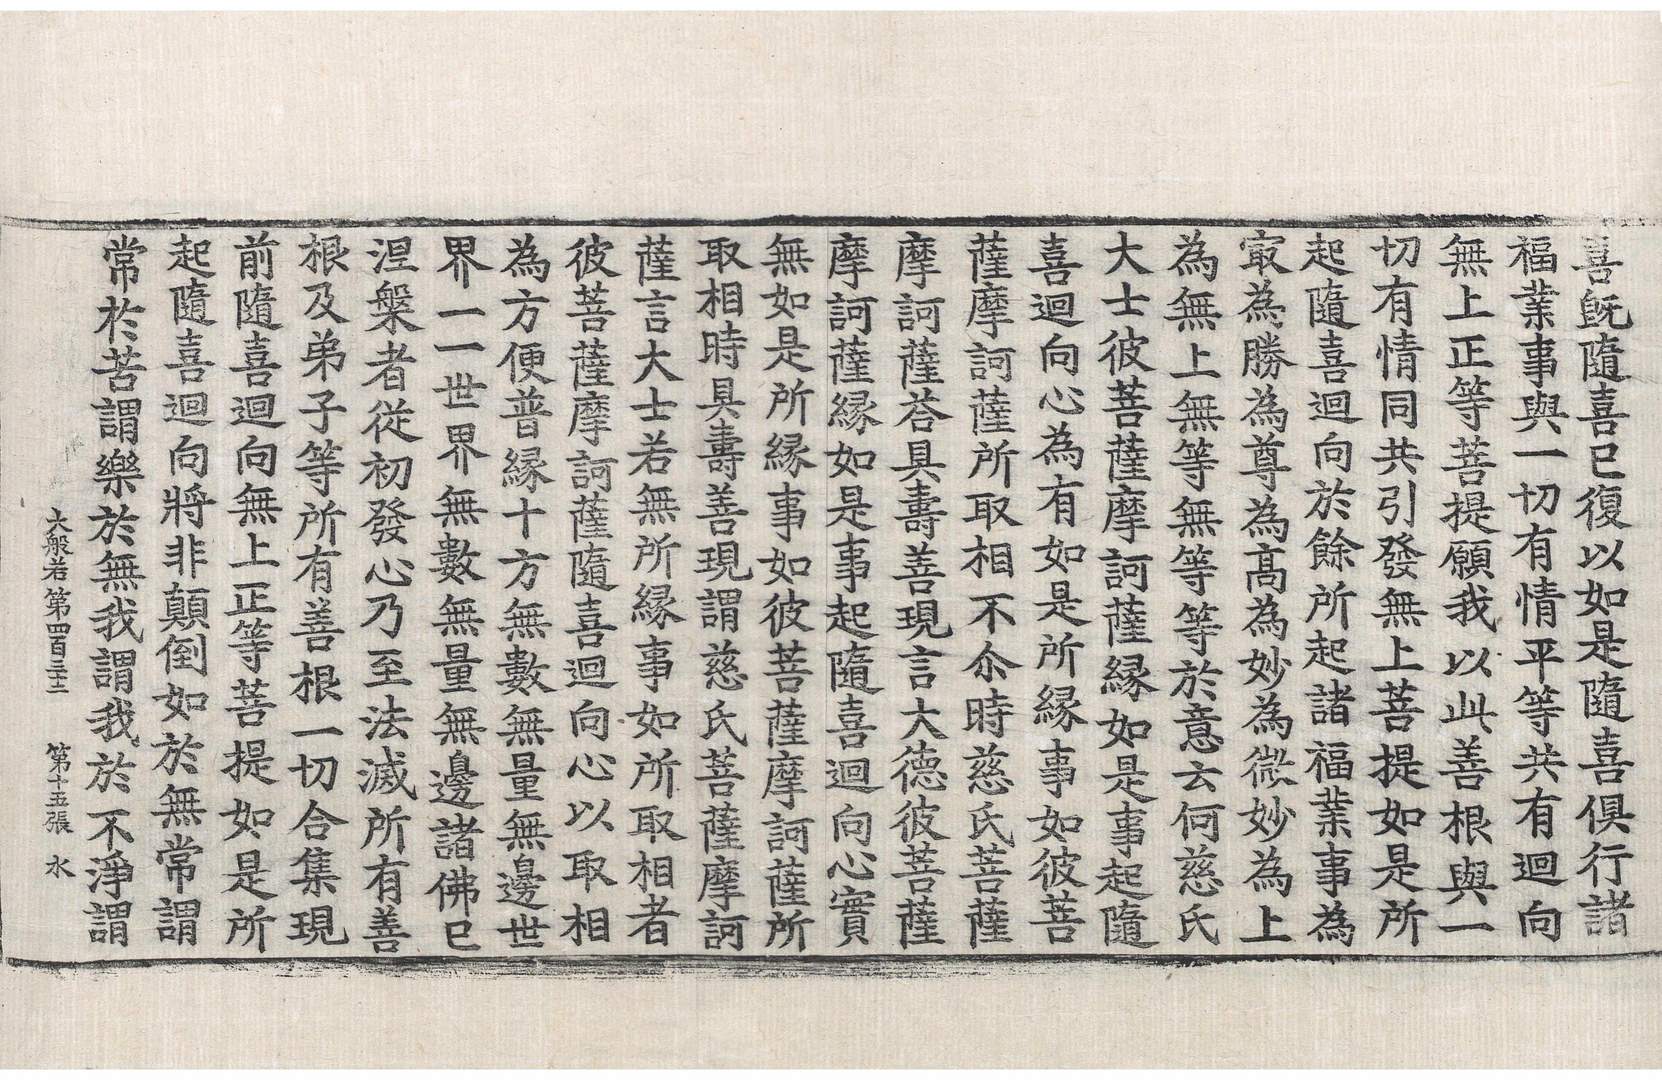 喜既隨喜已復以如是隨喜俱行諸
福業事與一切有情平等共有迴向
無上正等菩提願我以此善根與一
切有情同共引發無上菩提如是所
起隨喜迴向於餘所起諸福業事為
冣為勝為尊為高為妙為微妙為上
為無上無等無等等於意云何慈氏
大士彼菩薩摩訶薩縁如是事起隨
喜迴向心為有如是所縁事如彼菩
薩摩訶薩所取相不尒時慈氏菩薩
摩訶薩荅具壽善現言大德彼菩薩
摩訶薩縁如是事起隨喜迴向心實
無如是所縁事如彼菩薩摩訶薩所
取相時具壽善現謂慈氏菩薩摩訶
薩言大士若無所縁事如所取相者
彼菩薩摩訶薩隨喜迴向心以取相
為方便普縁十方無數無量無邊世
界一一世界無數無量無邊諸佛已
涅槃者從初發心乃至法滅所有善
根及弟子等所有善根一切合集現
前隨喜迴向無上正等菩提如是所
起隨喜迴向將非顛倒如於無常謂
常於苦謂樂於無我謂我於不淨謂
大般若第四百三十二 第十五張 水